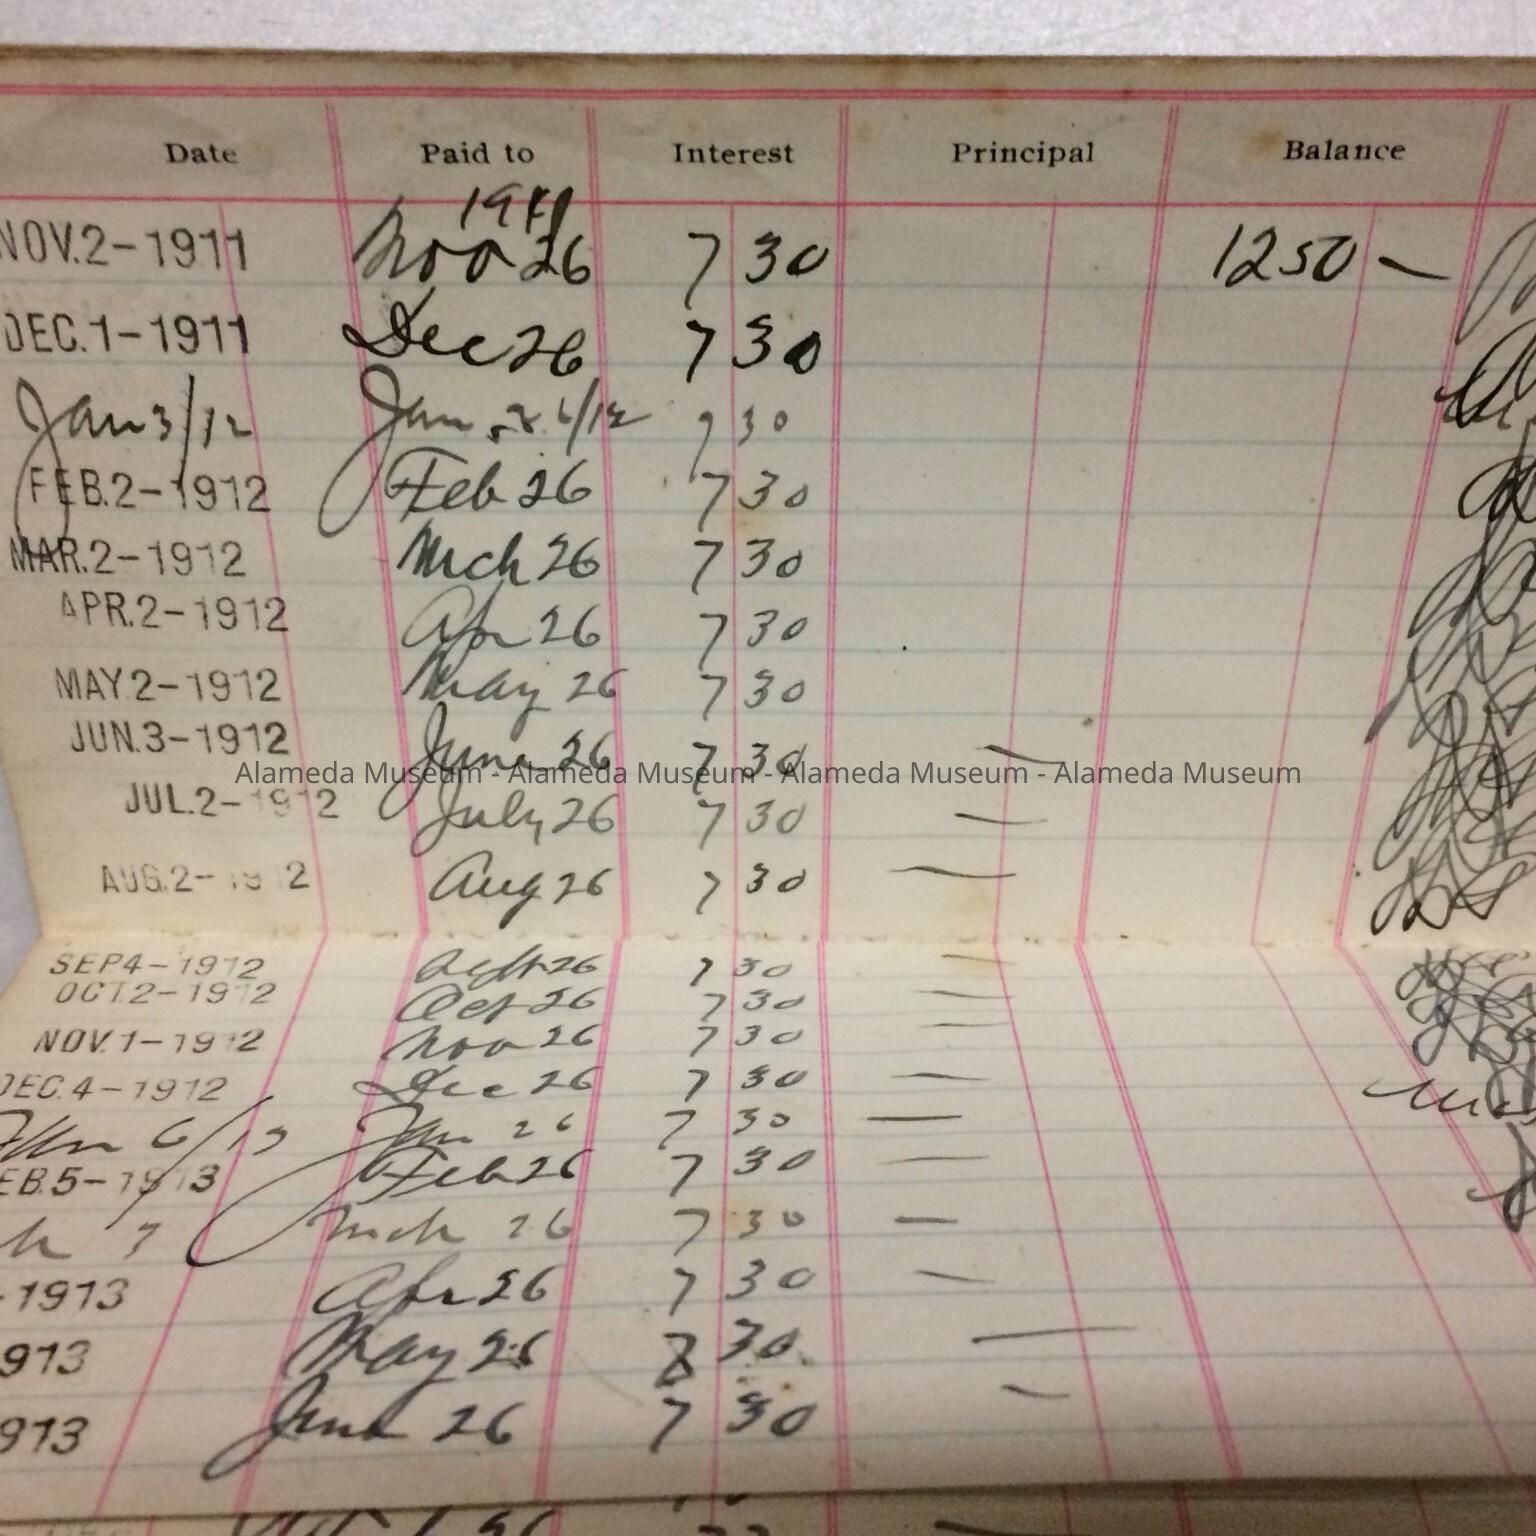 Date Paid to Interest Principal Balance
1911
NOV.2-1911 Nov 26 7 30 1250 -
DEC.1-1911 Dec 26 7 30
Jan 3/12 Jan. 26/12 7 30
FEB.2-1912 Feb 26 7 30
MAR.2-1912 Mch 26 7 30
APR.2-1912 Apr 26 7 30
MAY.2-1912 May 26 7 30
JUN.3-1912 June 26 7 30 -
Alameda Museum - Alameda Museum - Alameda Museum - Alameda Museum
JUL.2-1912 July 26 7 30 -
AUG.2-1912 Aug 26 7 30 -
SEP.4-1912 Sept 26 7 30 -
OCT.2-1912 Oct 26 7 30 -
NOV.1-1912 Nov 26 7 30 -
DEC.4-1912 Dec 26 7 30 -
Jan 6/13 Jan 26 7 30 -
FEB.5-1913 Feb 26 7 30 -
ch 7 Mch 26 7 30 -
-1913 Apr 26 7 30 -
913 May 26 7 30 -
913 June 26 7 30 -